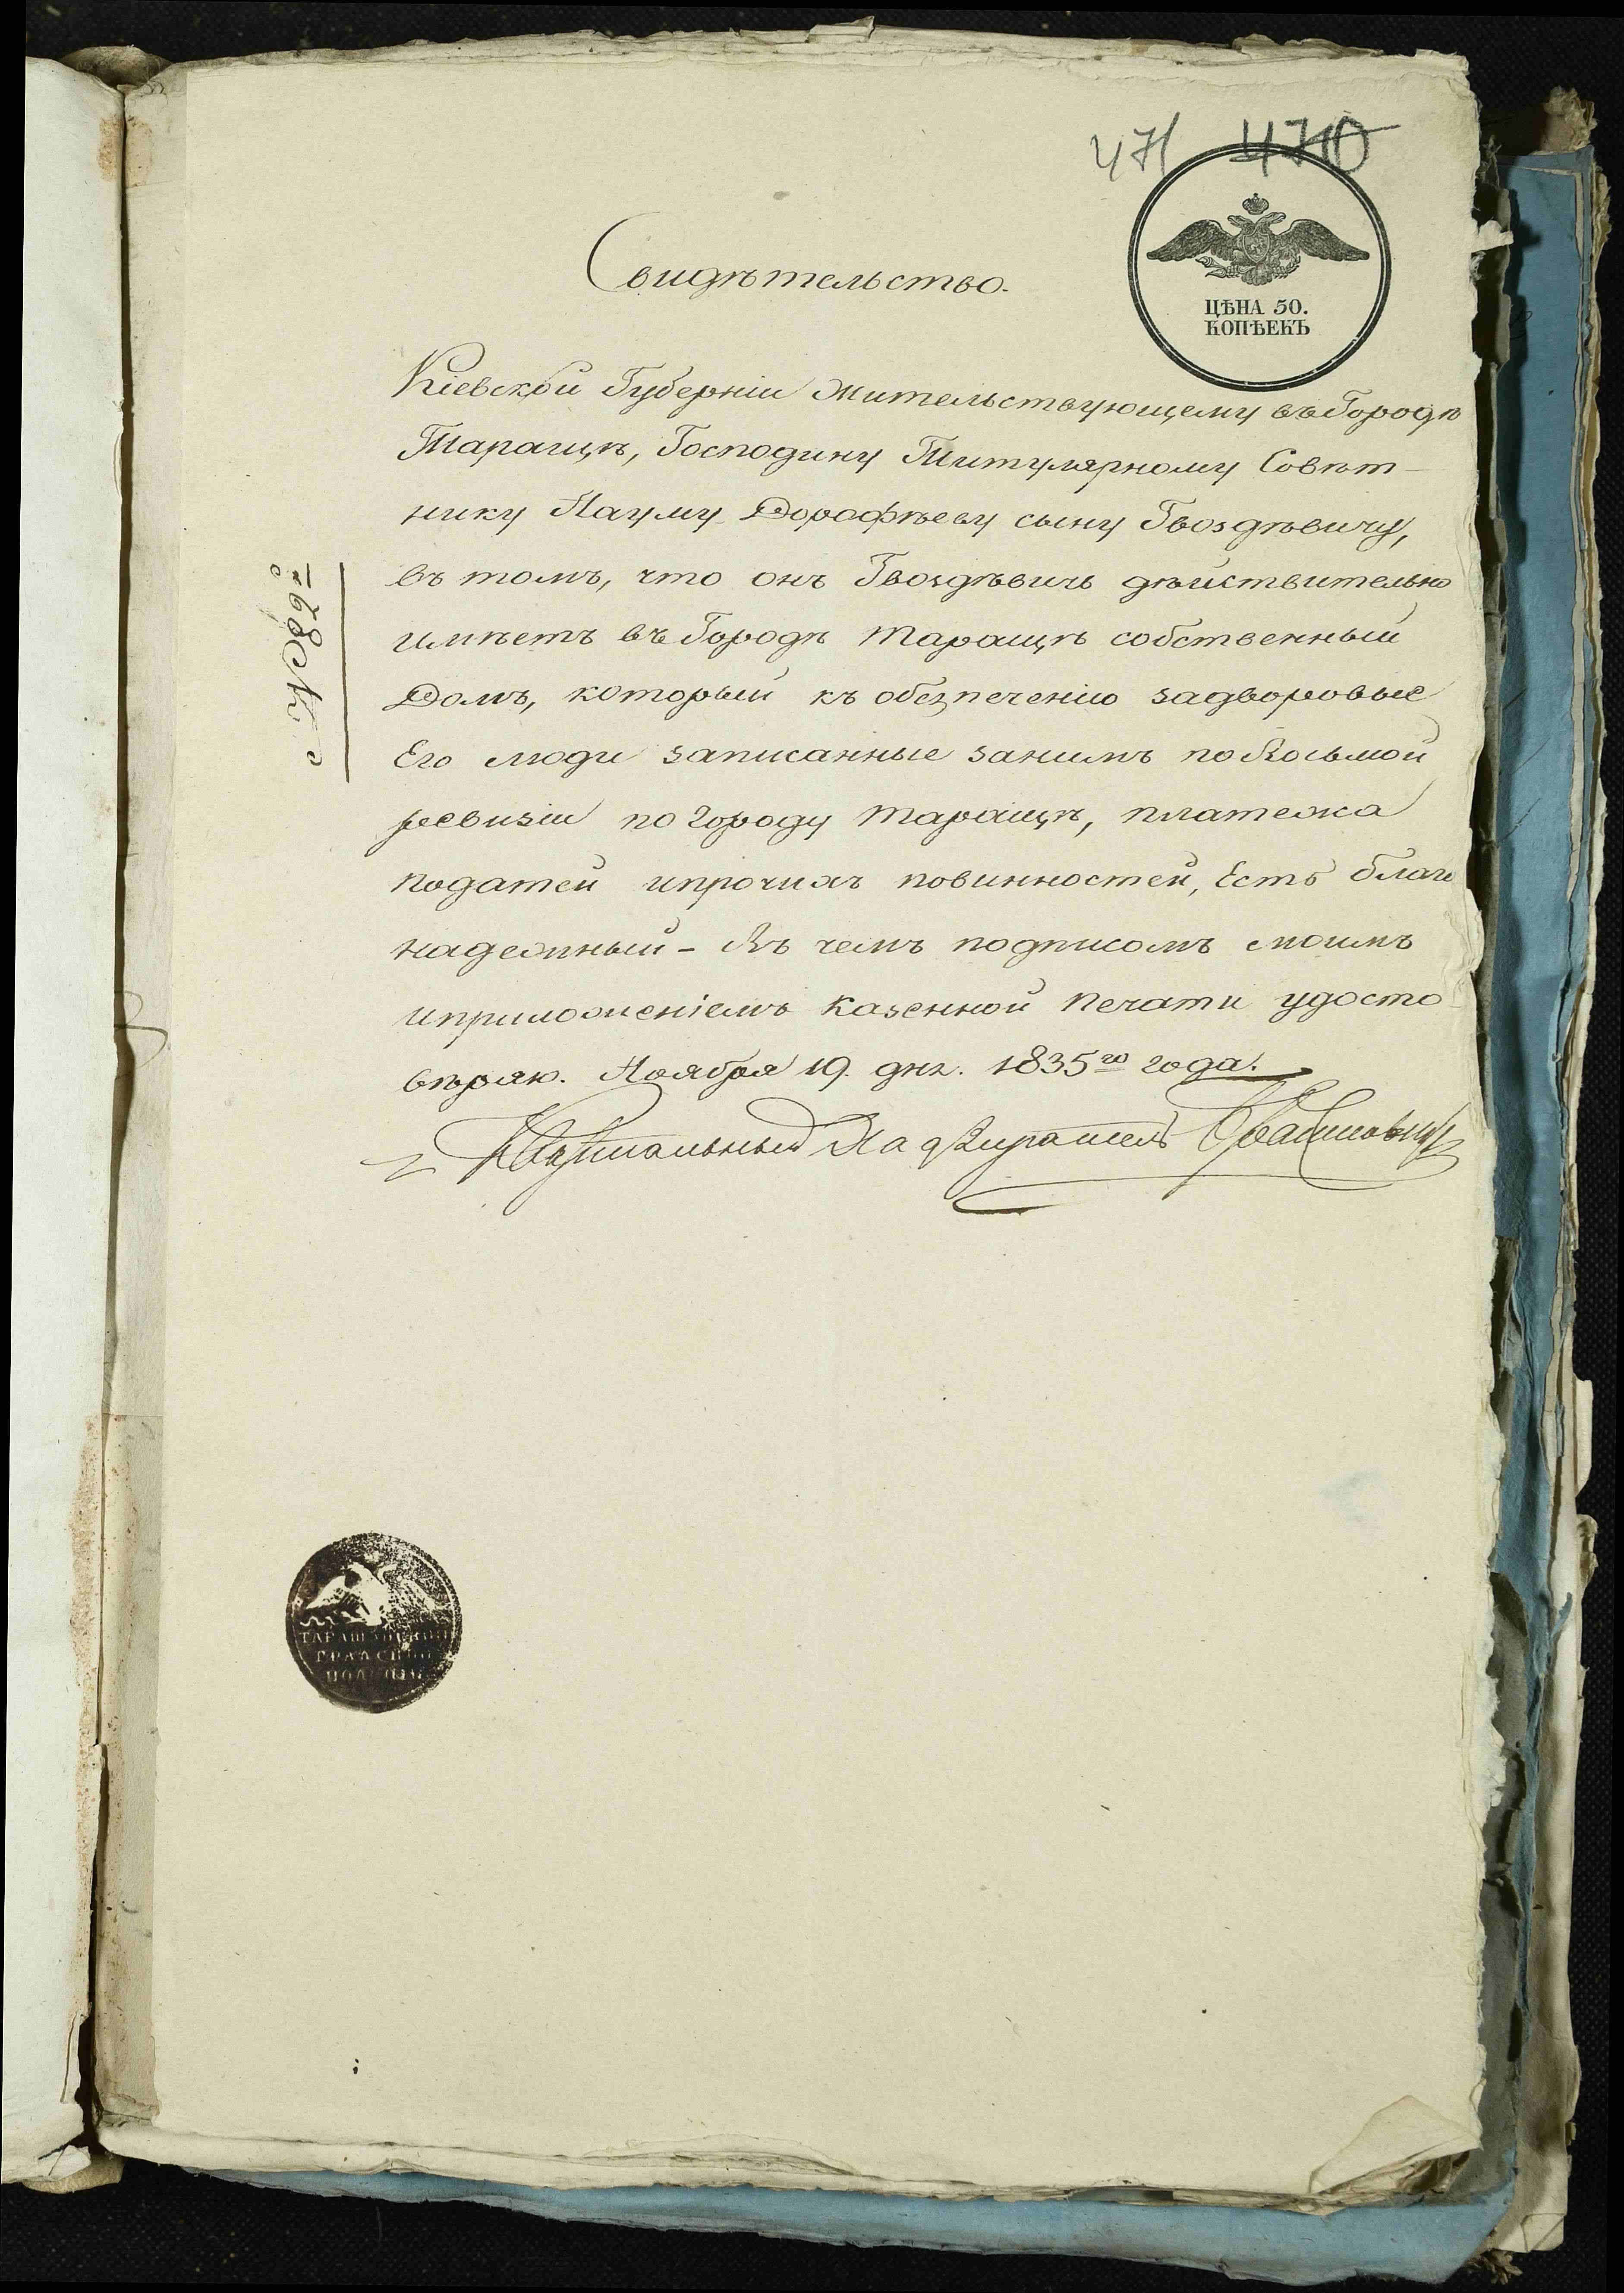 471 4710
ЦѢНА 50.
КОПѢЕКЪ
Свидѣтельство.
Кіевской Губерніи жительствующему въ Городѣ
Таращѣ, Господину Титулярному Совѣт-
нику Науму Дорофѣеву сыну Гвоздѣвичу,
въ томъ, что онъ Гвоздѣвичь дѣйствительно
имѣетъ въ Городѣ Таращѣ собственный
Домъ, который къ обезпеченію задворовые
Его люди записанные занимъ по Восьмой
ревизіи по городу Таращѣ, платежа
податей ипрочихъ повинностей, Есть благо
надежный - Въ чемъ подписомъ моимъ
иприложеніемъ казенной печати удосто-
вѣряю. Ноября 19. дня. 1835го года.
Квартальный Надзиратель
ТАРАЩАНСКОЙ
ГРАДСКОЙ
ПОЛИЦІИ